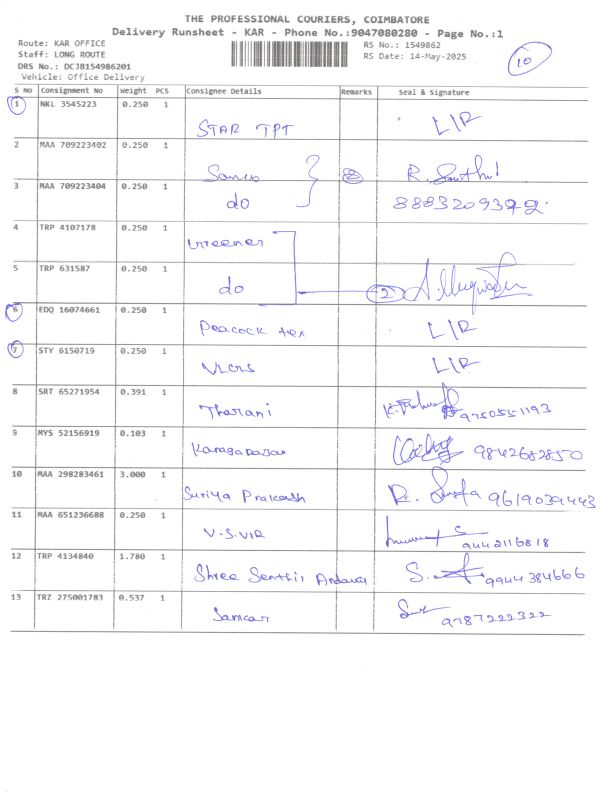 THE PROFESSIONAL COURIERS, COIMBATORE
Delivery Runsheet - KAR - Phone No.:9047080280 - Page No.:1
Route: KAR OFFICE
Staff: LONG ROUTE
DRS No.: DCJB154986201
Vehicle: Office Delivery
RS No.: 1549862
RS Date: 14-May-2025
10
S No Consignment No Weight PCS Consignee Details Remarks Seal & Signature
1 NKL 3545223 0.250 1 STAR TPT L/R
2 MAA 709223402 0.250 1 R.
3 MAA 709223404 0.250 1 do 8883209372
4 TRP 4107178 0.250 1 Greener
5 TRP 631587 0.250 1 do 2
6 EDQ 16074661 0.250 1 Peacock tex L/R
7 STY 6150719 0.250 1 L/R
8 SRT 65271954 0.391 1 Tharani 9750551193
9 MYS 52156919 0.103 1 9842682850
10 MAA 298283461 3.000 1 Suriya Prakash 9619039443
11 MAA 651236688 0.250 1 V.S.VIR 9442116818
12 TRP 4134840 1.780 1 Shree Senthil Andavar S. 9944384666
13 TRZ 275001783 0.537 1 Sankar 9787222322